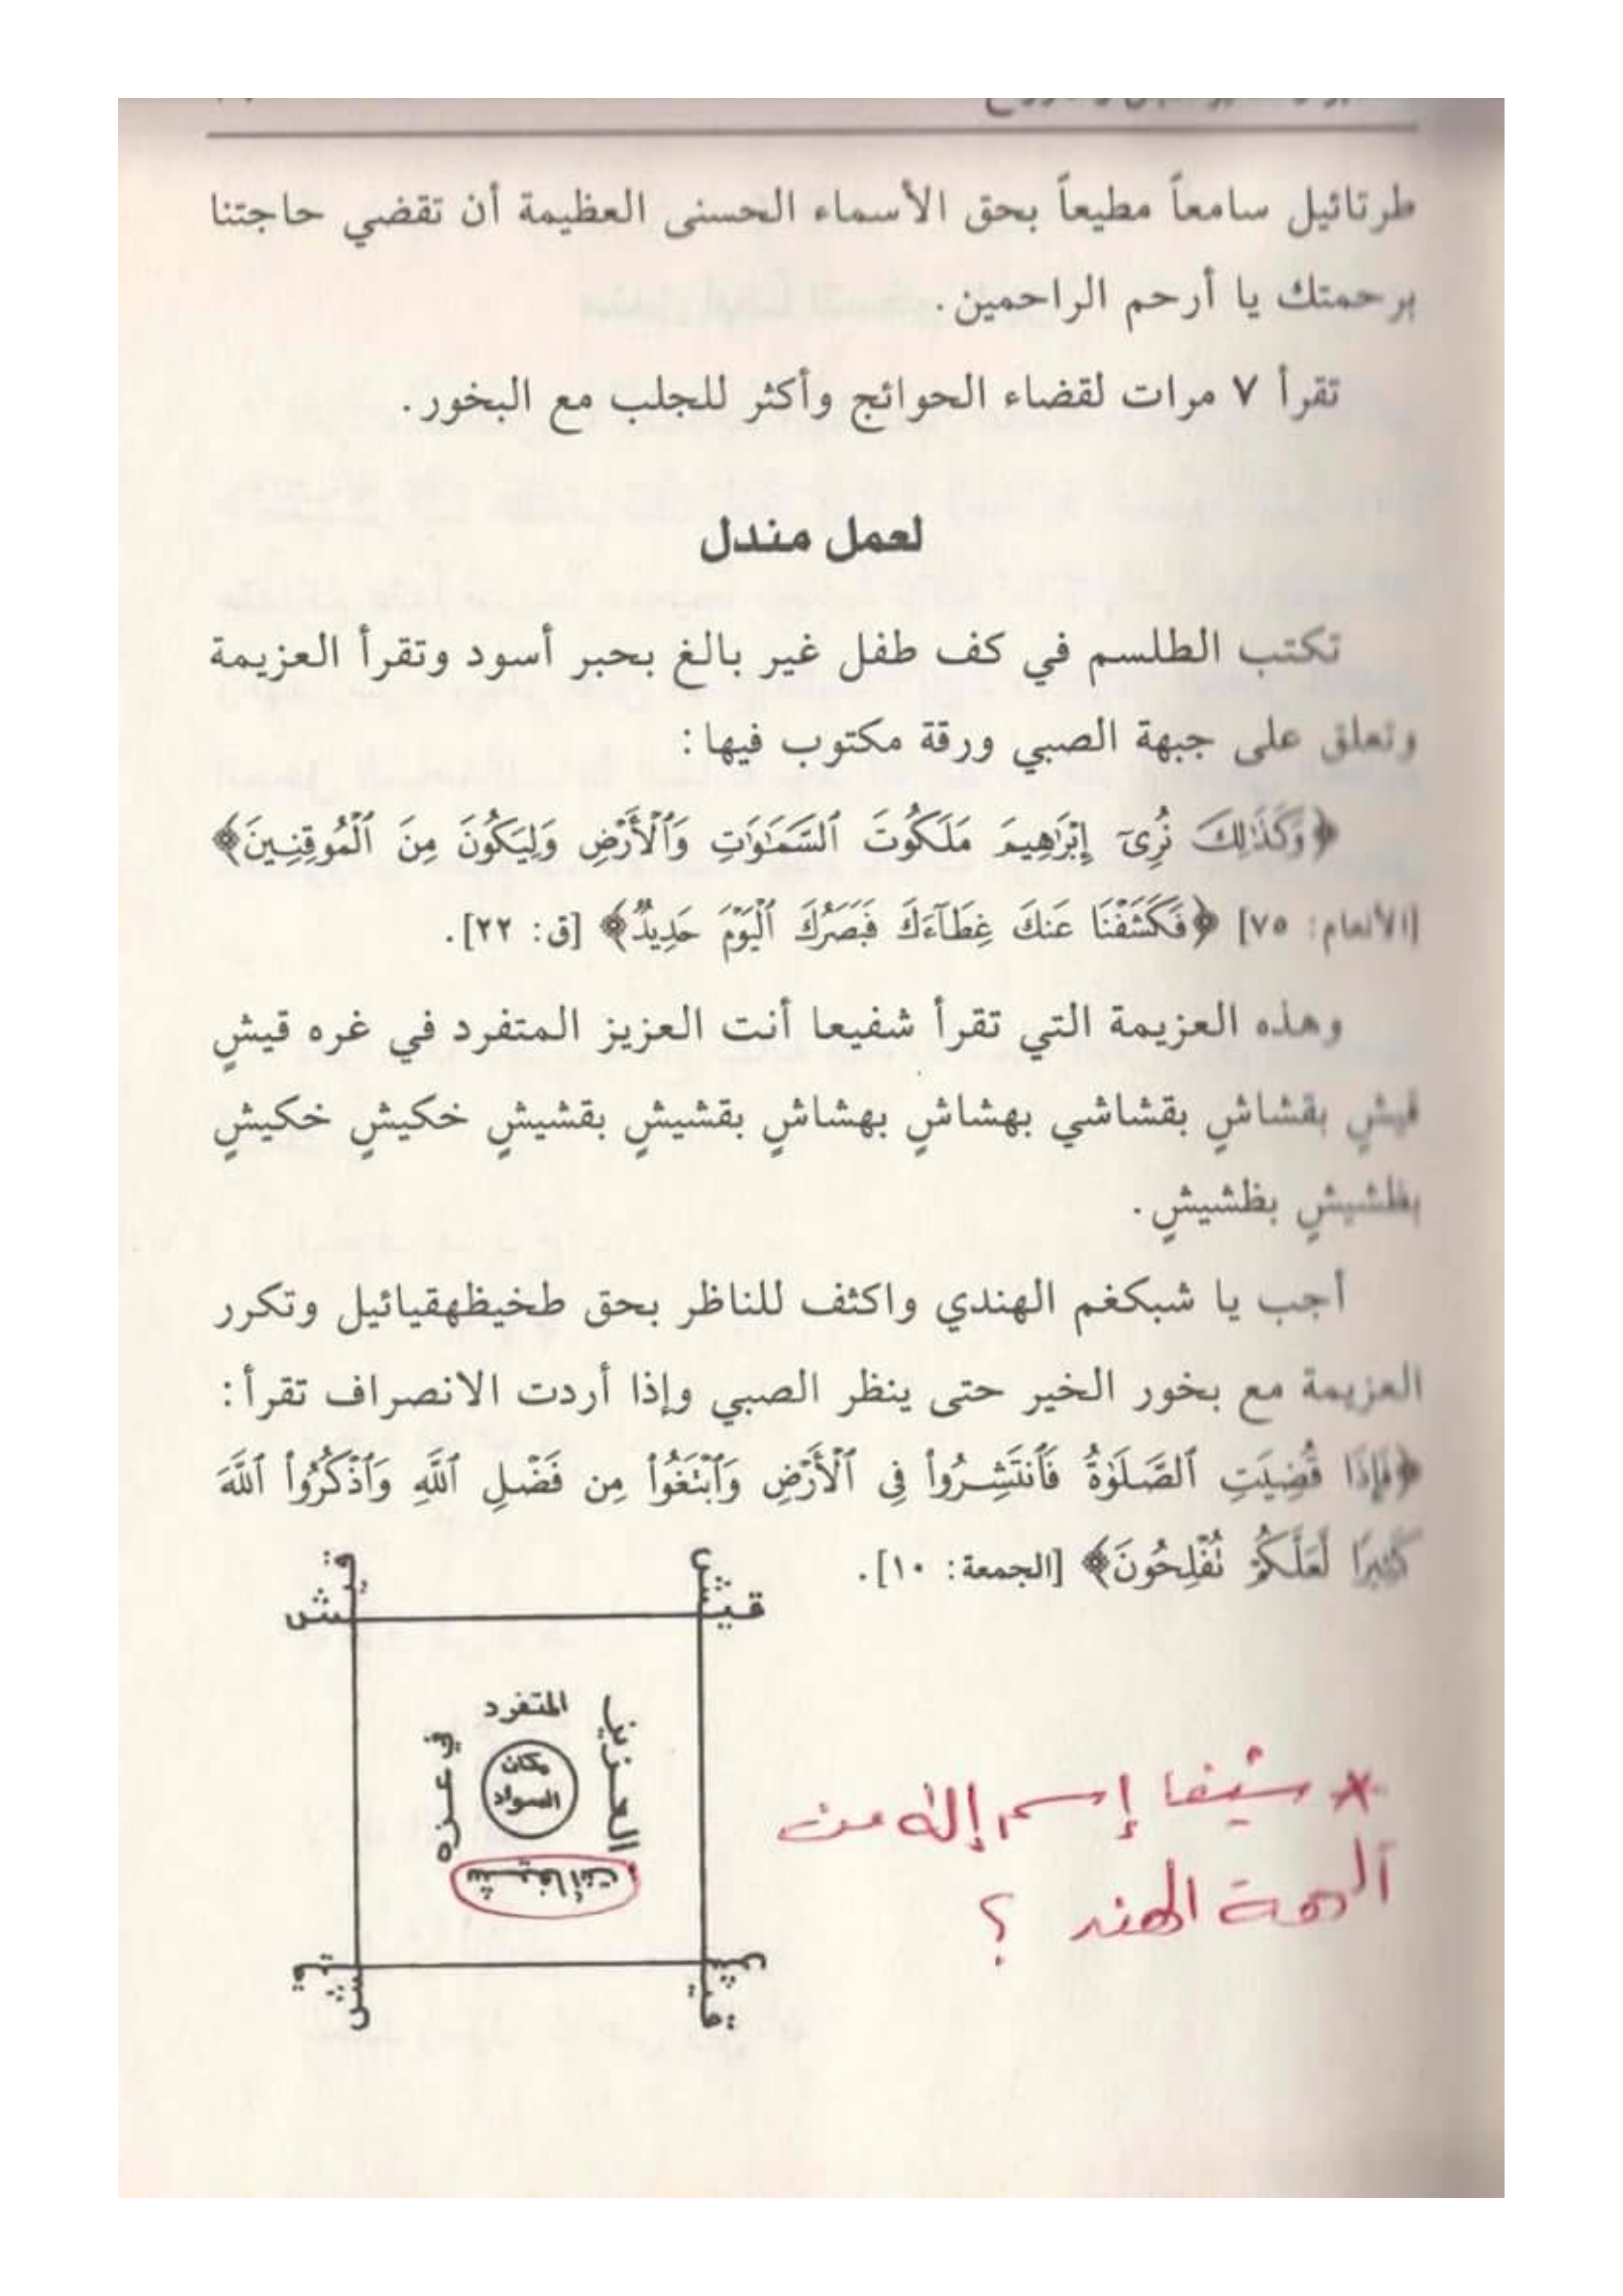 طرتائيل سامعاً مطيعاً بحق الأسماء الحسنى العظيمة أن تقضي حاجتنا
برحمتك يا أرحم الراحمين.
تقرأ ٧ مرات لقضاء الحوائج وأكثر للجلب مع البخور.
لعمل مندل
تكتب الطلسم في كف طفل غير بالغ بحبر أسود وتقرأ العزيمة
وتعلق على جبهة الصبي ورقة مكتوب فيها:
﴿وَكَذَٰلِكَ نُرِىٓ إِبْرَٰهِيمَ مَلَكُوتَ ٱلسَّمَٰوَٰتِ وَٱلْأَرْضِ وَلِيَكُونَ مِنَ ٱلْمُوقِنِينَ﴾
[الأنعام: ٧٥] ﴿فَكَشَفْنَا عَنكَ غِطَآءَكَ فَبَصَرُكَ ٱلْيَوْمَ حَدِيدٌ﴾ [ق: ٢٢].
وهذه العزيمة التي تقرأ شفيعا أنت العزيز المتفرد في غره قيشٍ
قيشٍ بقشاشٍ بقشاشي بهشاشٍ بهشاشٍ بقشيشٍ بقشيشٍ خكيشٍ خكيشٍ
بظشيشٍ بظشيشٍ.
أجب يا شبكغم الهندي واكثف للناظر بحق طخيظهقيائيل وتكرر
العزيمة مع بخور الخير حتى ينظر الصبي وإذا أردت الانصراف تقرأ:
﴿فَإِذَا قُضِيَتِ ٱلصَّلَوٰةُ فَٱنتَشِرُوا۟ فِى ٱلْأَرْضِ وَٱبْتَغُوا۟ مِن فَضْلِ ٱللَّهِ وَٱذْكُرُوا۟ ٱللَّهَ
كَثِيرًا لَّعَلَّكُمْ تُفْلِحُونَ﴾ [الجمعة: ١٠].
قيش
قيش
قيش
قيش
المتفرد
العزيز
في عزه
مكان
السواد
قيش
قيش
قيش
قيش
* شيفا إسم إله من
آلهة الهند ؟